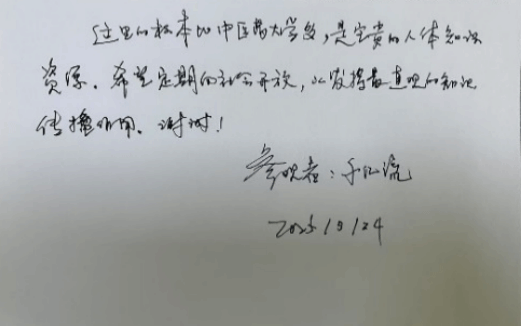 这里的标本如中医药大学般,是宝贵的人体知识
资源、希望定期向社会开放,以发挥最直观的知识
传播作用、谢谢!
参观者: